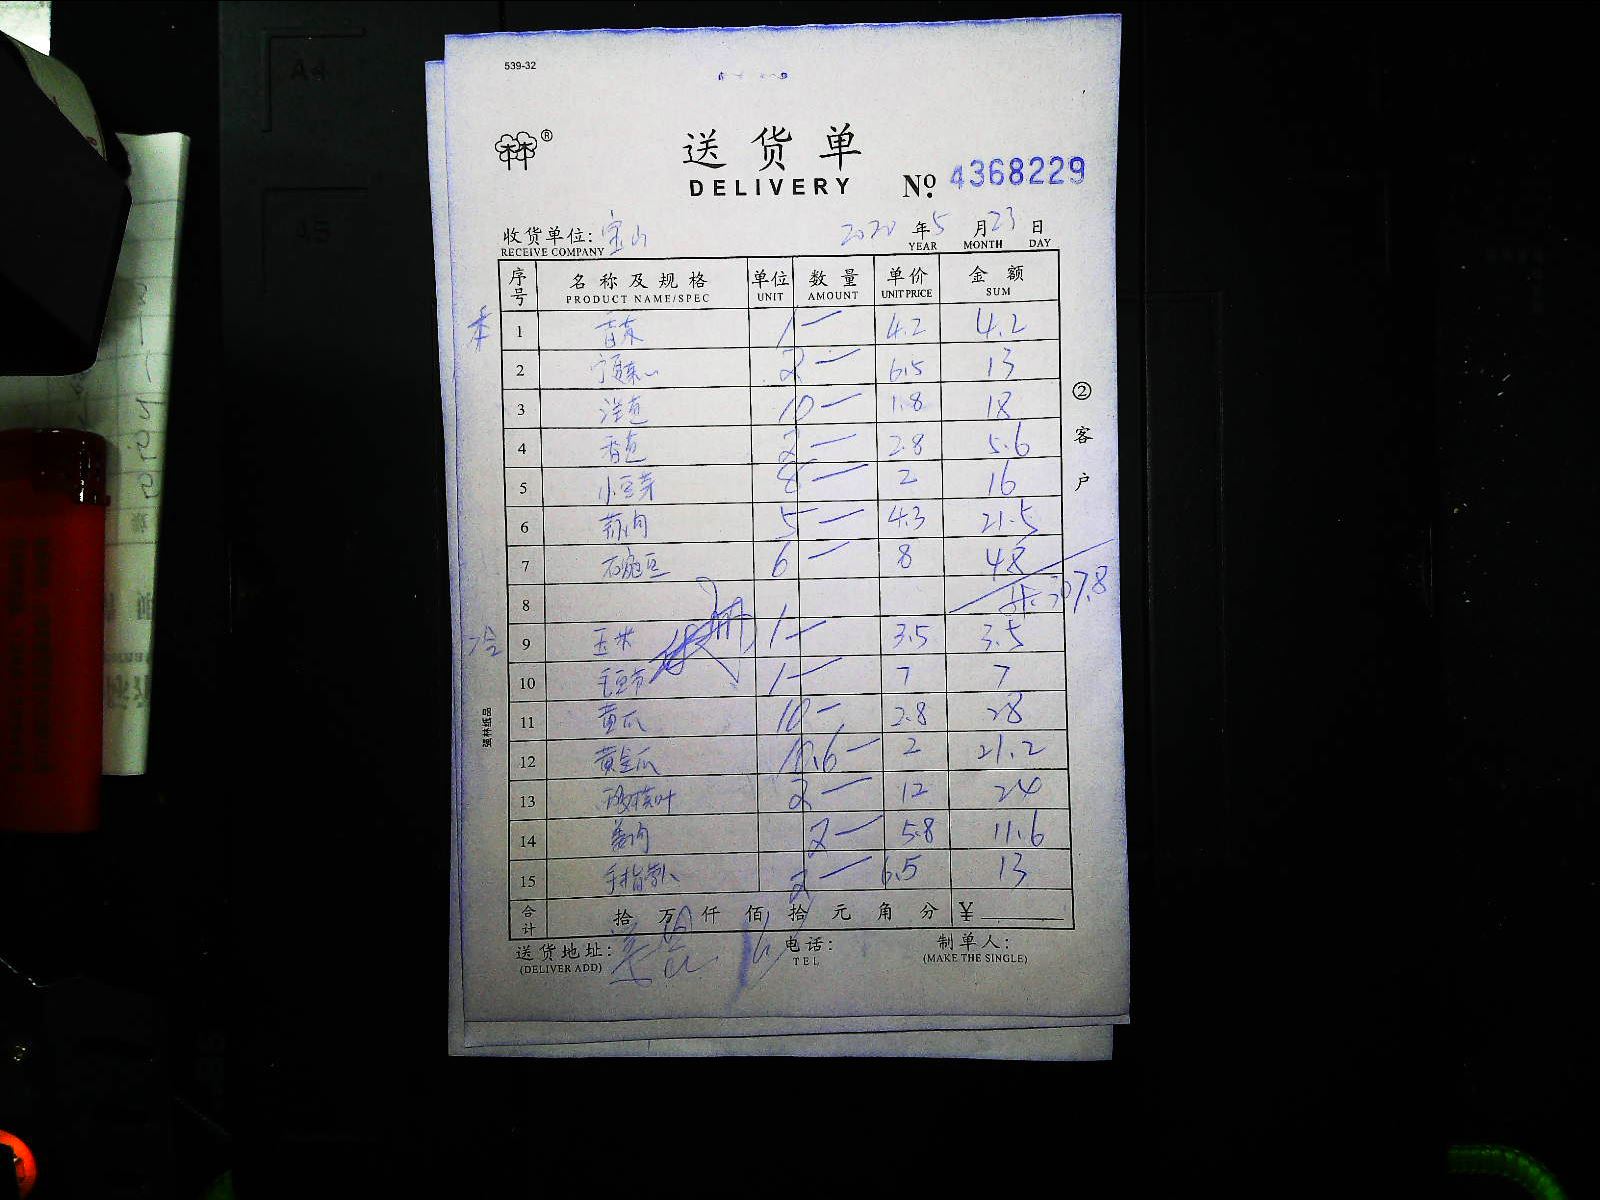 539-32
林®
送货单
DELIVERY
№ 4368229
收货单位: 宝山 2020 年 5 月 23 日
RECEIVE COMPANY YEAR MONTH DAY
序号 名称及规格 单位 数量 单价 金额
PRODUCT NAME/SPEC UNIT AMOUNT UNIT PRICE SUM
1 香菜 1 — 4.2 4.2
2 2 — 6.5 13
3 洋葱 10 — 1.8 18
4 香葱 2 — 2.8 5.6
5 小豆芽 8 — 2 16
6 5 — 4.3 21.5
7 6 — 8 48
8
9 玉米 1 — 3.5 3.5
10 毛豆节 1 — 7 7
11 黄瓜 10 — 2.8 28
12 黄金瓜 10.6 — 2 21.2
13 2 — 12 24
14 2 — 5.8 11.6
15 2 — 6.5 13
合计 拾 万 仟 佰 拾 元 角 分 ¥
送货地址: 电话: 制单人:
(DELIVER ADD) TEL (MAKE THE SINGLE)
②客户
强林纸品
A4